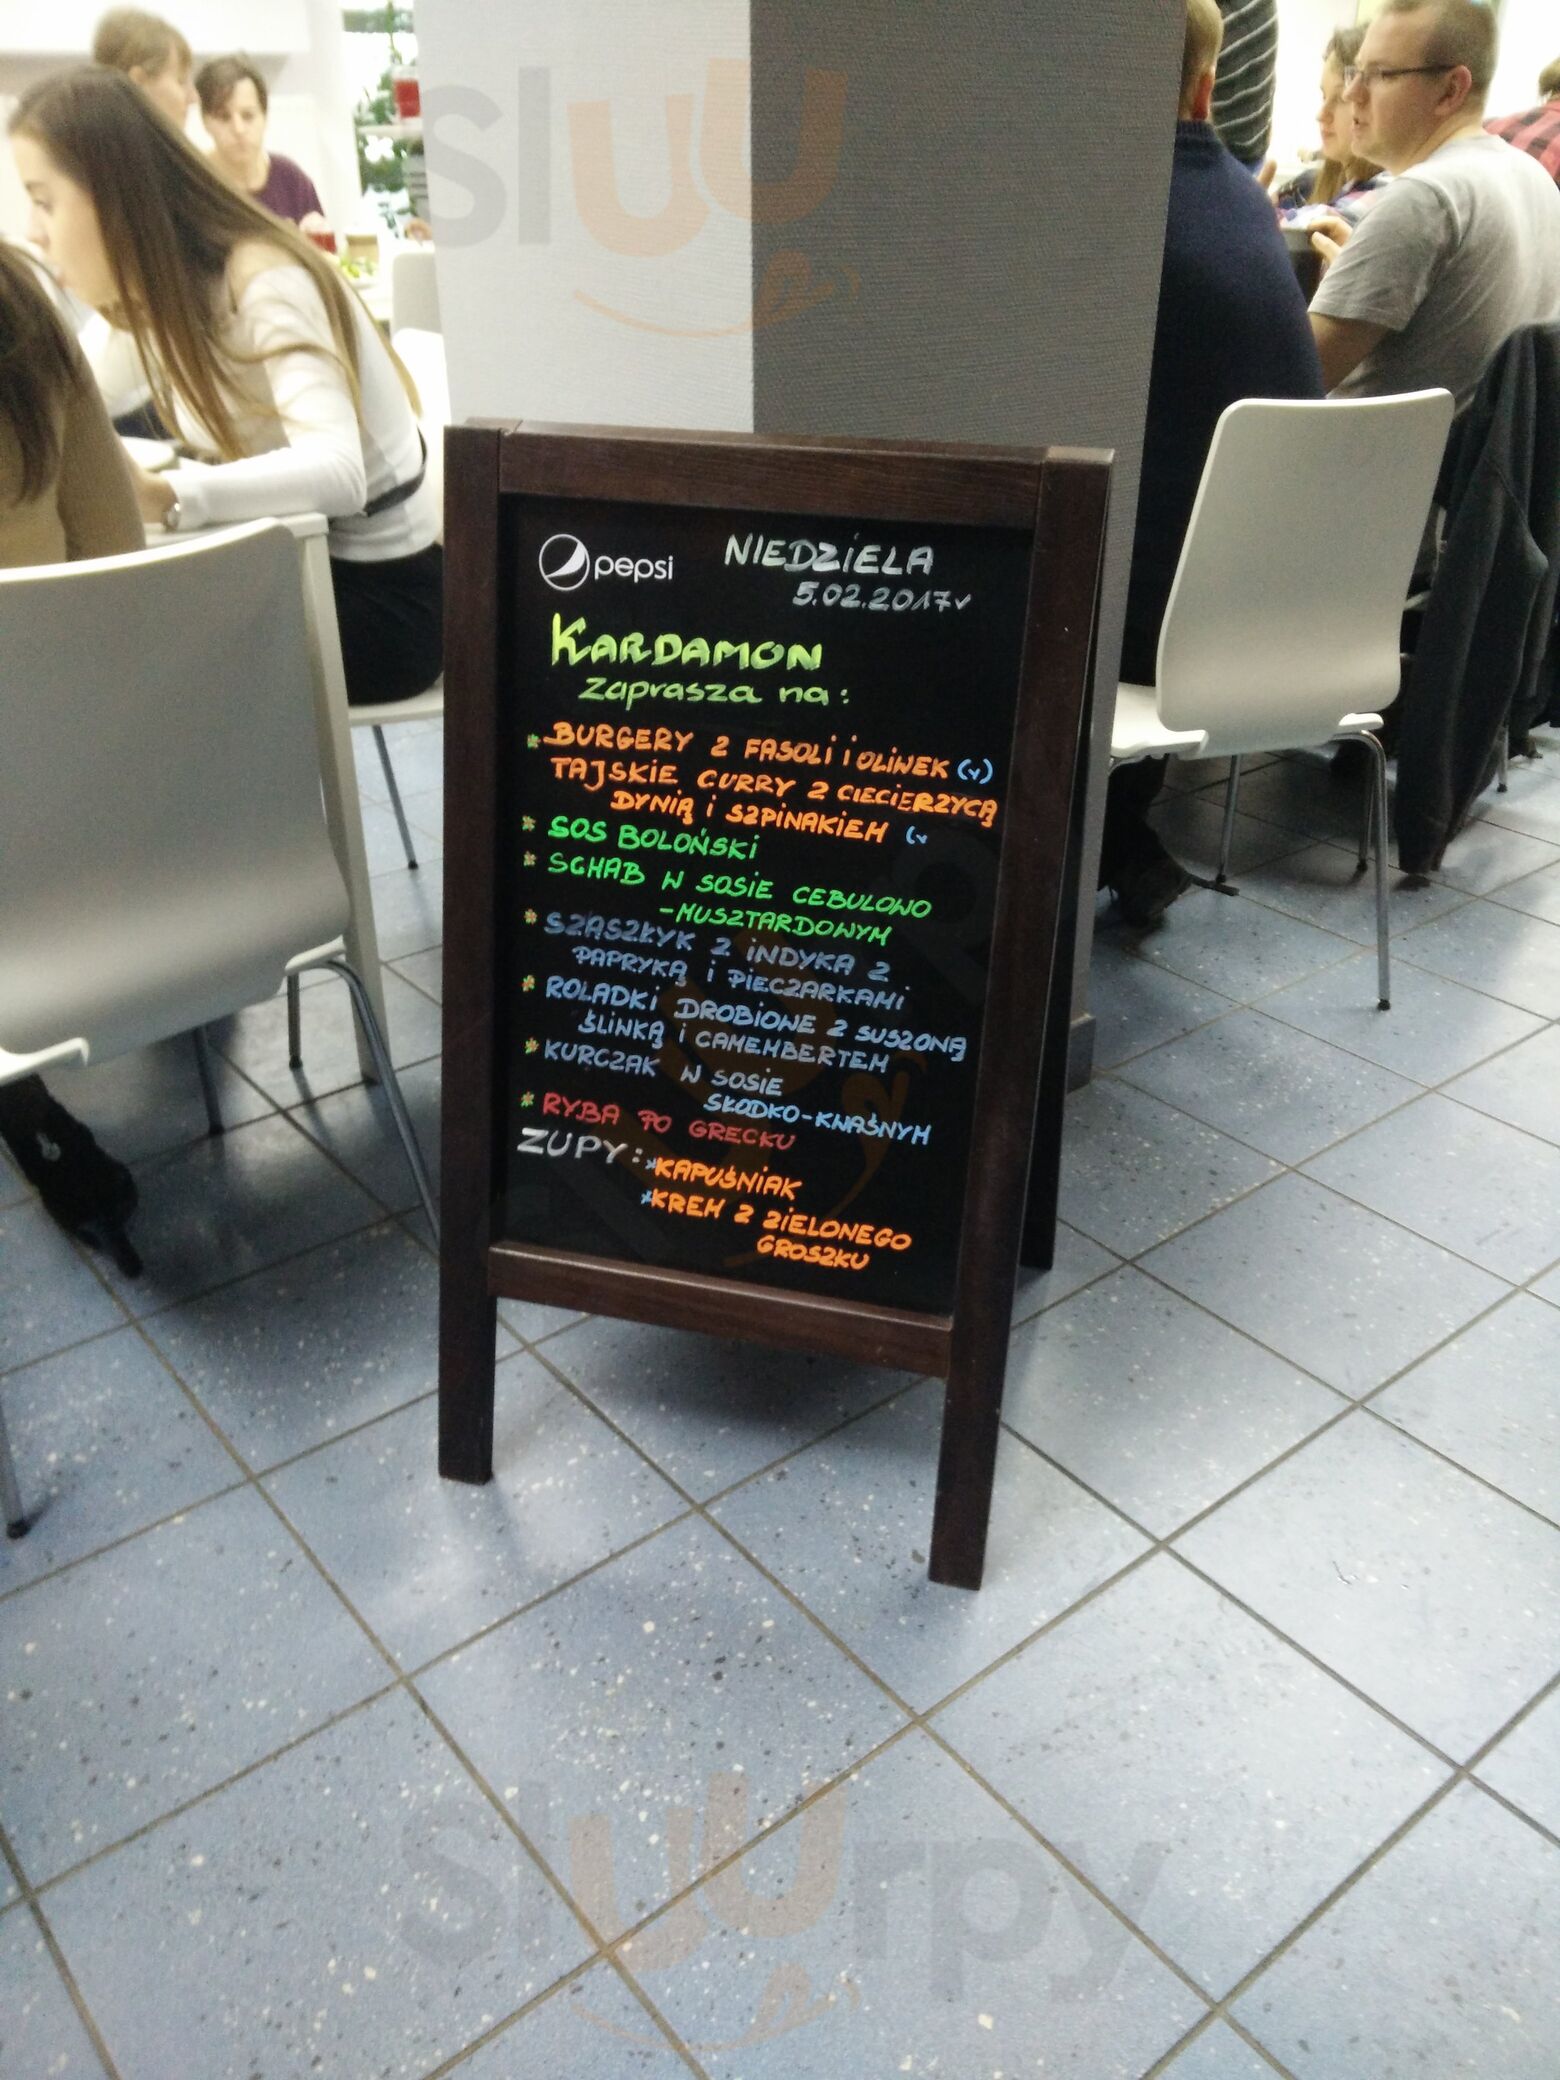 sluurpy
pepsi
NIEDZiELA
5.02.2017
KARDAMON
Zaprasza na:
* BURGERY Z FASOLi i OLiWEK (v)
TAJSKiE CURRY Z CiECiERZYCĄ
DYNiĄ i SZPiNAKiEM (v
* SOS BOLOŃSKi
* SCHAB W SOSiE CEBULOWO
-MUSZTARDOWYM
* SZASZŁYK Z iNDYKA Z
PAPRYKĄ i PiECZARKAMi
* ROLADKi DROBiOWE Z SUSZONĄ
ŚLiWKĄ i CAMEMBERTEM
* KURCZAK W SOSiE
SŁODKO-KWAŚNYM
* RYBA PO GRECKU
ZUPY: *KAPUŚNiAK
*KREM Z ZiELONEGO
GROSZKU
sluurpy